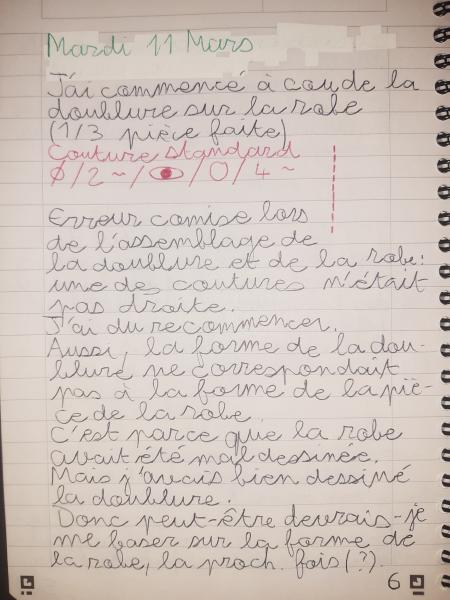 Mardi 11 Mars
J'ai commencé à coude la
doublure sur la robe
(1/3 pièce faite)
Couture standard
Ø/2~/👁/O/4~
Erreur comise lors
de l'assemblage de
la doublure et de la robe:
une des coutures n'était
pas droite.
J'ai du recommencer.
Aussi, la forme de la dou-
blure ne correspondait
pas à la forme de la piè-
ce de la robe
C'est parce que la robe
avait été mal dessinée.
Mais j'avais bien dessiné
la doublure.
Donc peut-être devrais-je
me baser sur la forme de
la robe, la proch. fois (?).
6